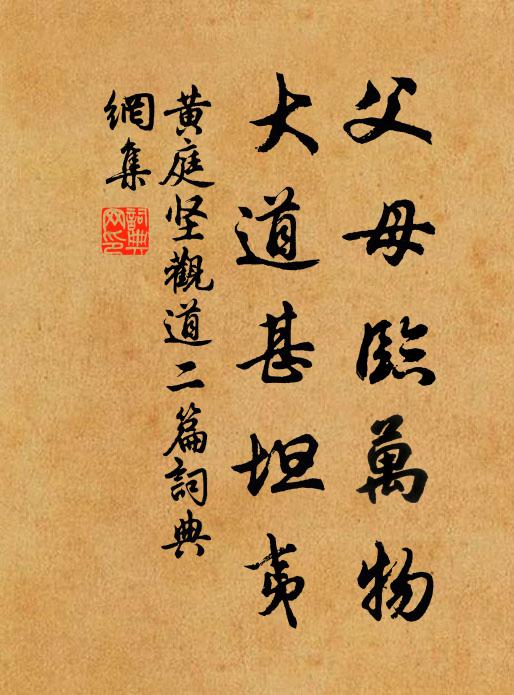 父母臨萬物
大道甚坦夷
黄庭坚觀道二篇詞典
網集
詞典網印